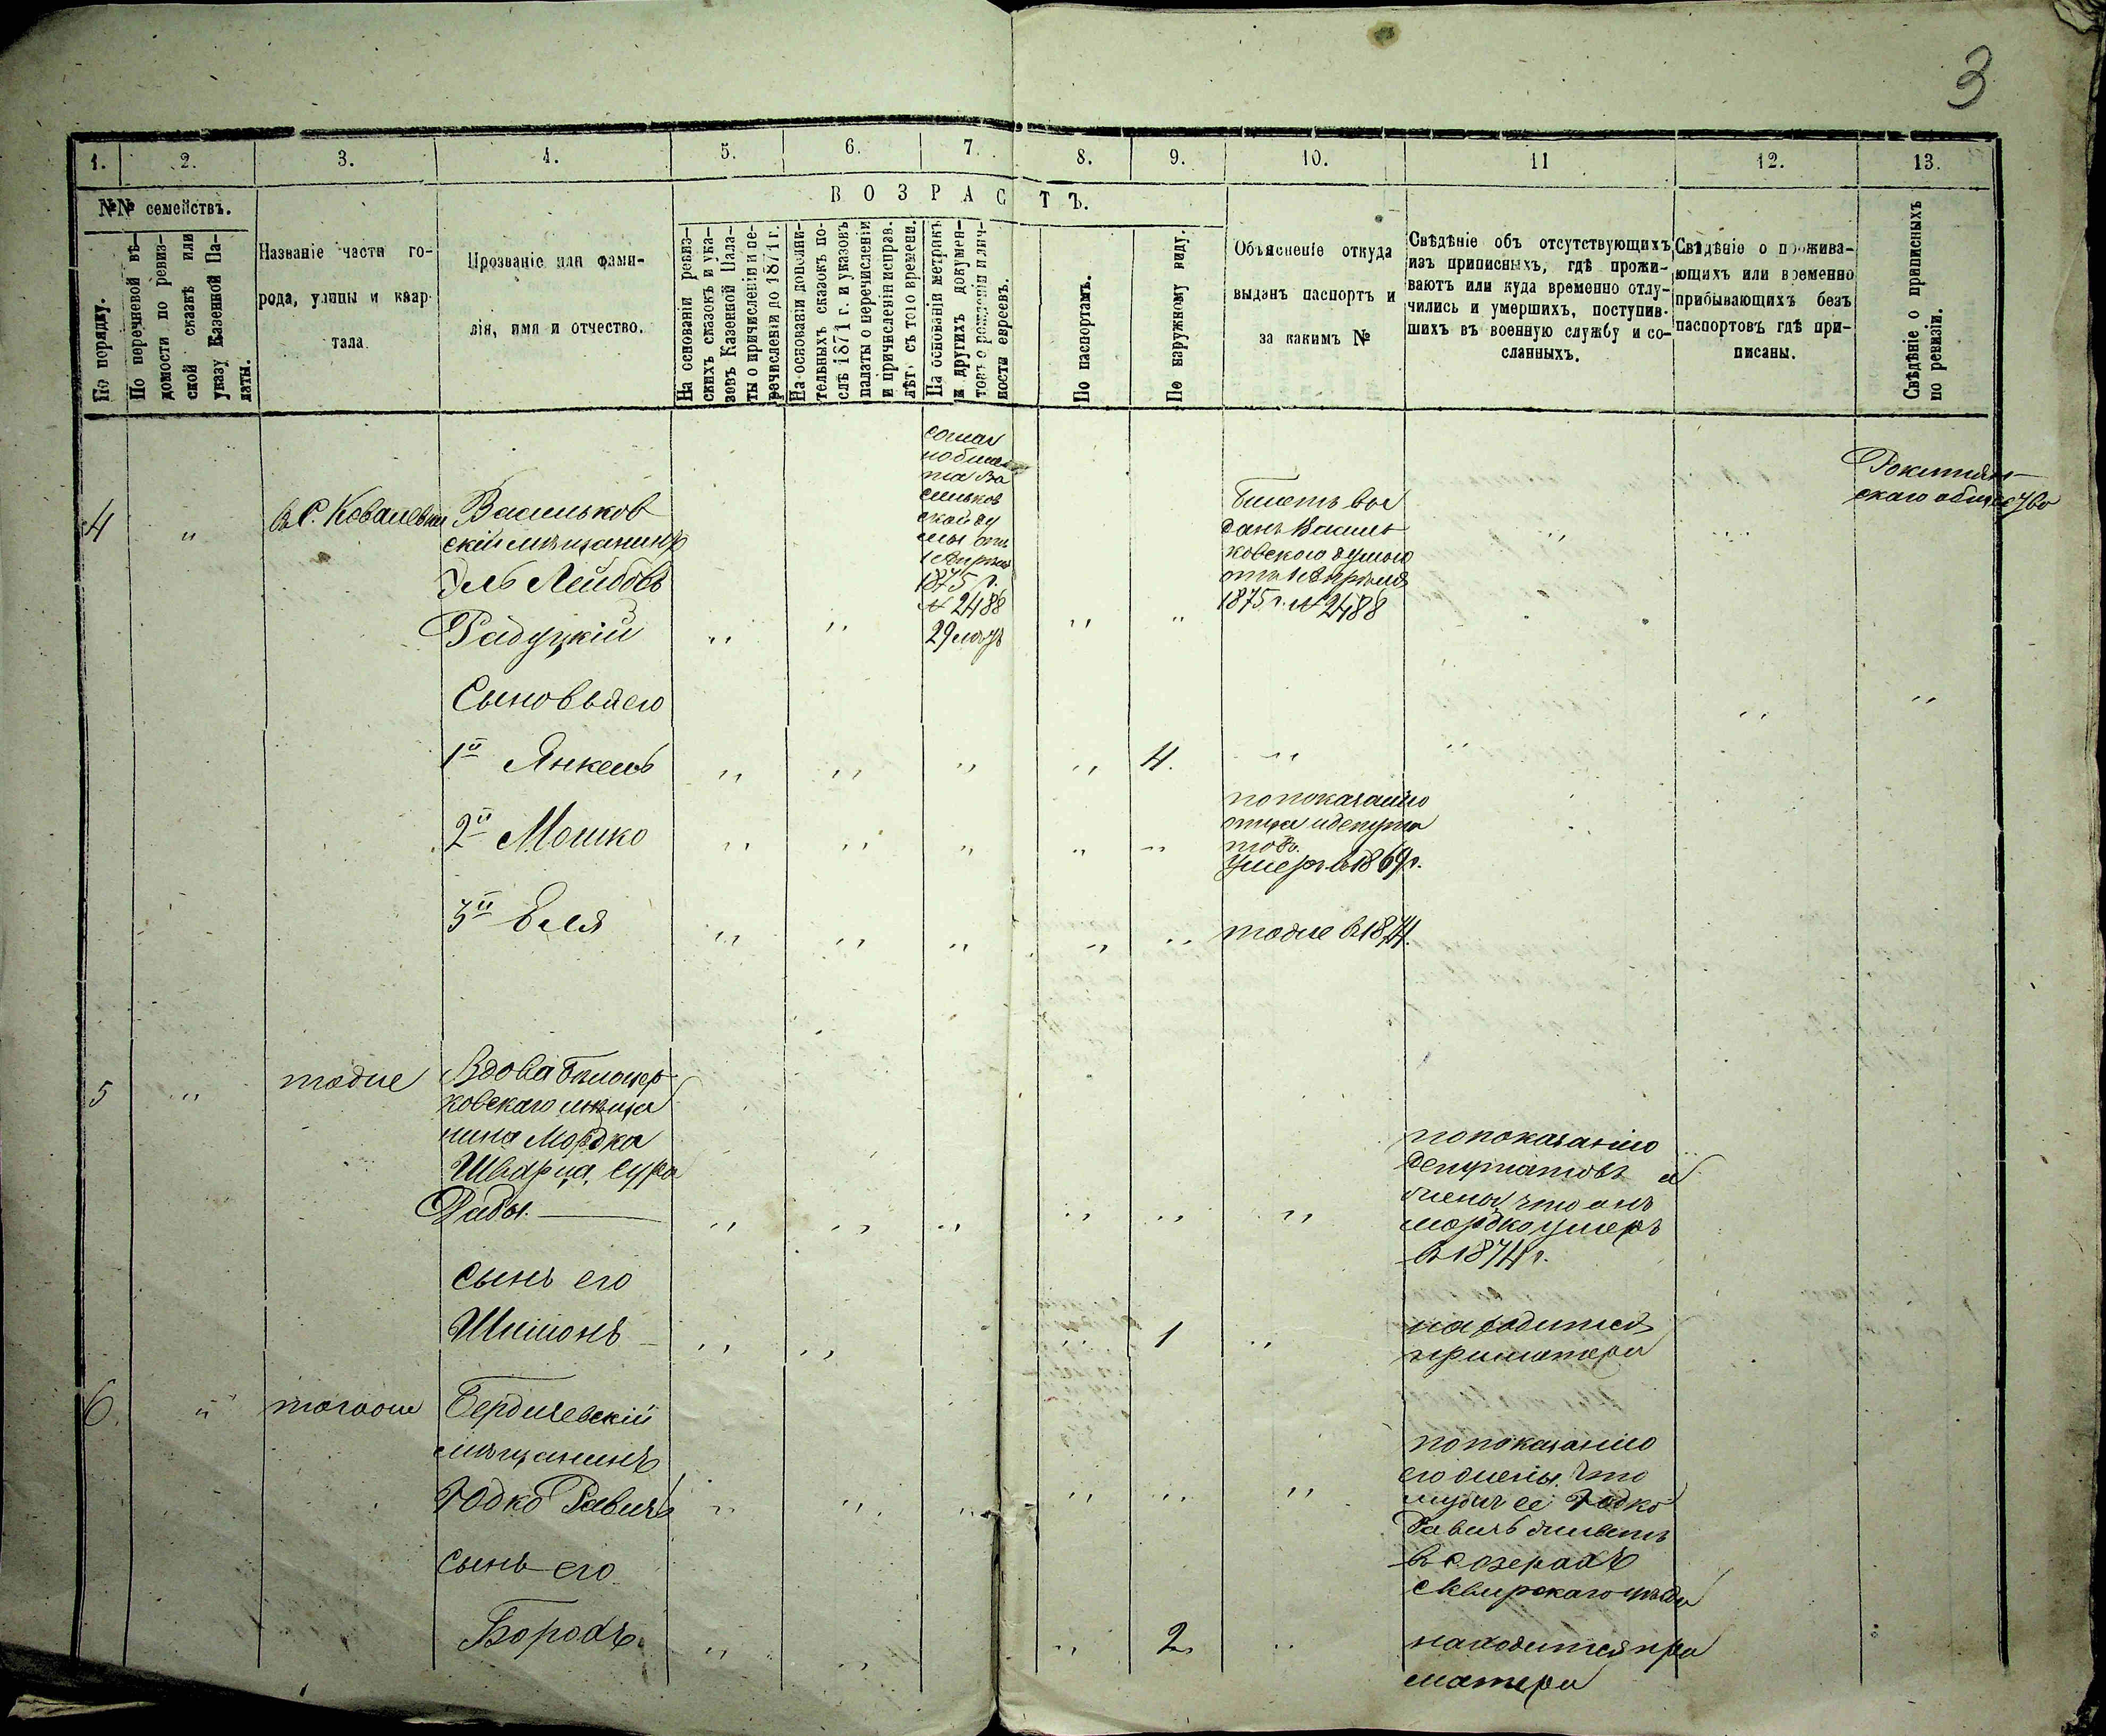 3
1. 2. 3. 4. 5. 6. 7. 8. 9. 10. 11 12. 13.
№№ семействъ.
По порядку.
По перечневой вѣ-
домости по ревиз-
ской сказкѣ или
указу Казенной Па-
латы.
Названіе части го-
рода, улицы и квар-
тала.
Прозваніе или фами-
лія, имя и отчество.
ВОЗРАСТЪ.
На основаніи ревиз-
скихъ сказокъ и ука-
зовъ Казенной Пала-
ты о причисленіи и пе-
речисленіи до 1871 г.
На основаніи дополни-
тельныхъ сказокъ по-
слѣ 1871 г. и указовъ
палаты о перечисленіи
и причисленіи исправ.
лѣт. съ того времени.
На основаніи метрикъ
и другихъ докумен-
товъ о рожденіи и лич-
ности евреевъ.
По паспортамъ.
По наружному виду.
Объясненіе откуда
выданъ паспортъ и
за какимъ №
Свѣдѣніе объ отсутствующихъ
изъ приписныхъ, гдѣ прожи-
ваютъ или куда временно отлу-
чились и умершихъ, поступив-
шихъ въ военную службу и со-
сланныхъ.
Свѣдѣніе о прожива-
ющихъ или временно
прибывающихъ безъ
паспортовъ гдѣ при-
писаны.
Свѣдѣніе о приписныхъ
по ревизіи.
4
"
В С.
Васильков
скій мѣщанинъ
Эль Лейбовъ
Радуцкій
по биле
та Ва
сильков
ской ду
мы отъ
1875 г.
№ 2488
29 лѣтъ
Билетъ вы
данъ Василь
ковскою думою
1875 г. № 2488
Рокитян-
скаго общества
Сыновья его
1й Янкель
4.
2й Мошко
по показанію
отца и депута
товъ.
умеръ в 1869 г.
3й Еля
тоже в 1874.
5
"
тоже
Вдова Бѣлоцер
ковскаго мѣща
нина Мордка
Шварца, Сура
Рабы.
по показанію
депутатовъ и
жены, что онъ
Мордко умеръ
в 1874 г.
Сынъ его
Шимонъ
1
находится
при матери
6.
"
Бердичевскій
мѣщанинъ
Юдко Равичъ
по показанію
его жены, что
мужъ ее Юдко
Равичъ живетъ
в с. Озерахъ
Сквирскаго уѣзда
сынъ его
Борохъ
2.
находится при
матери